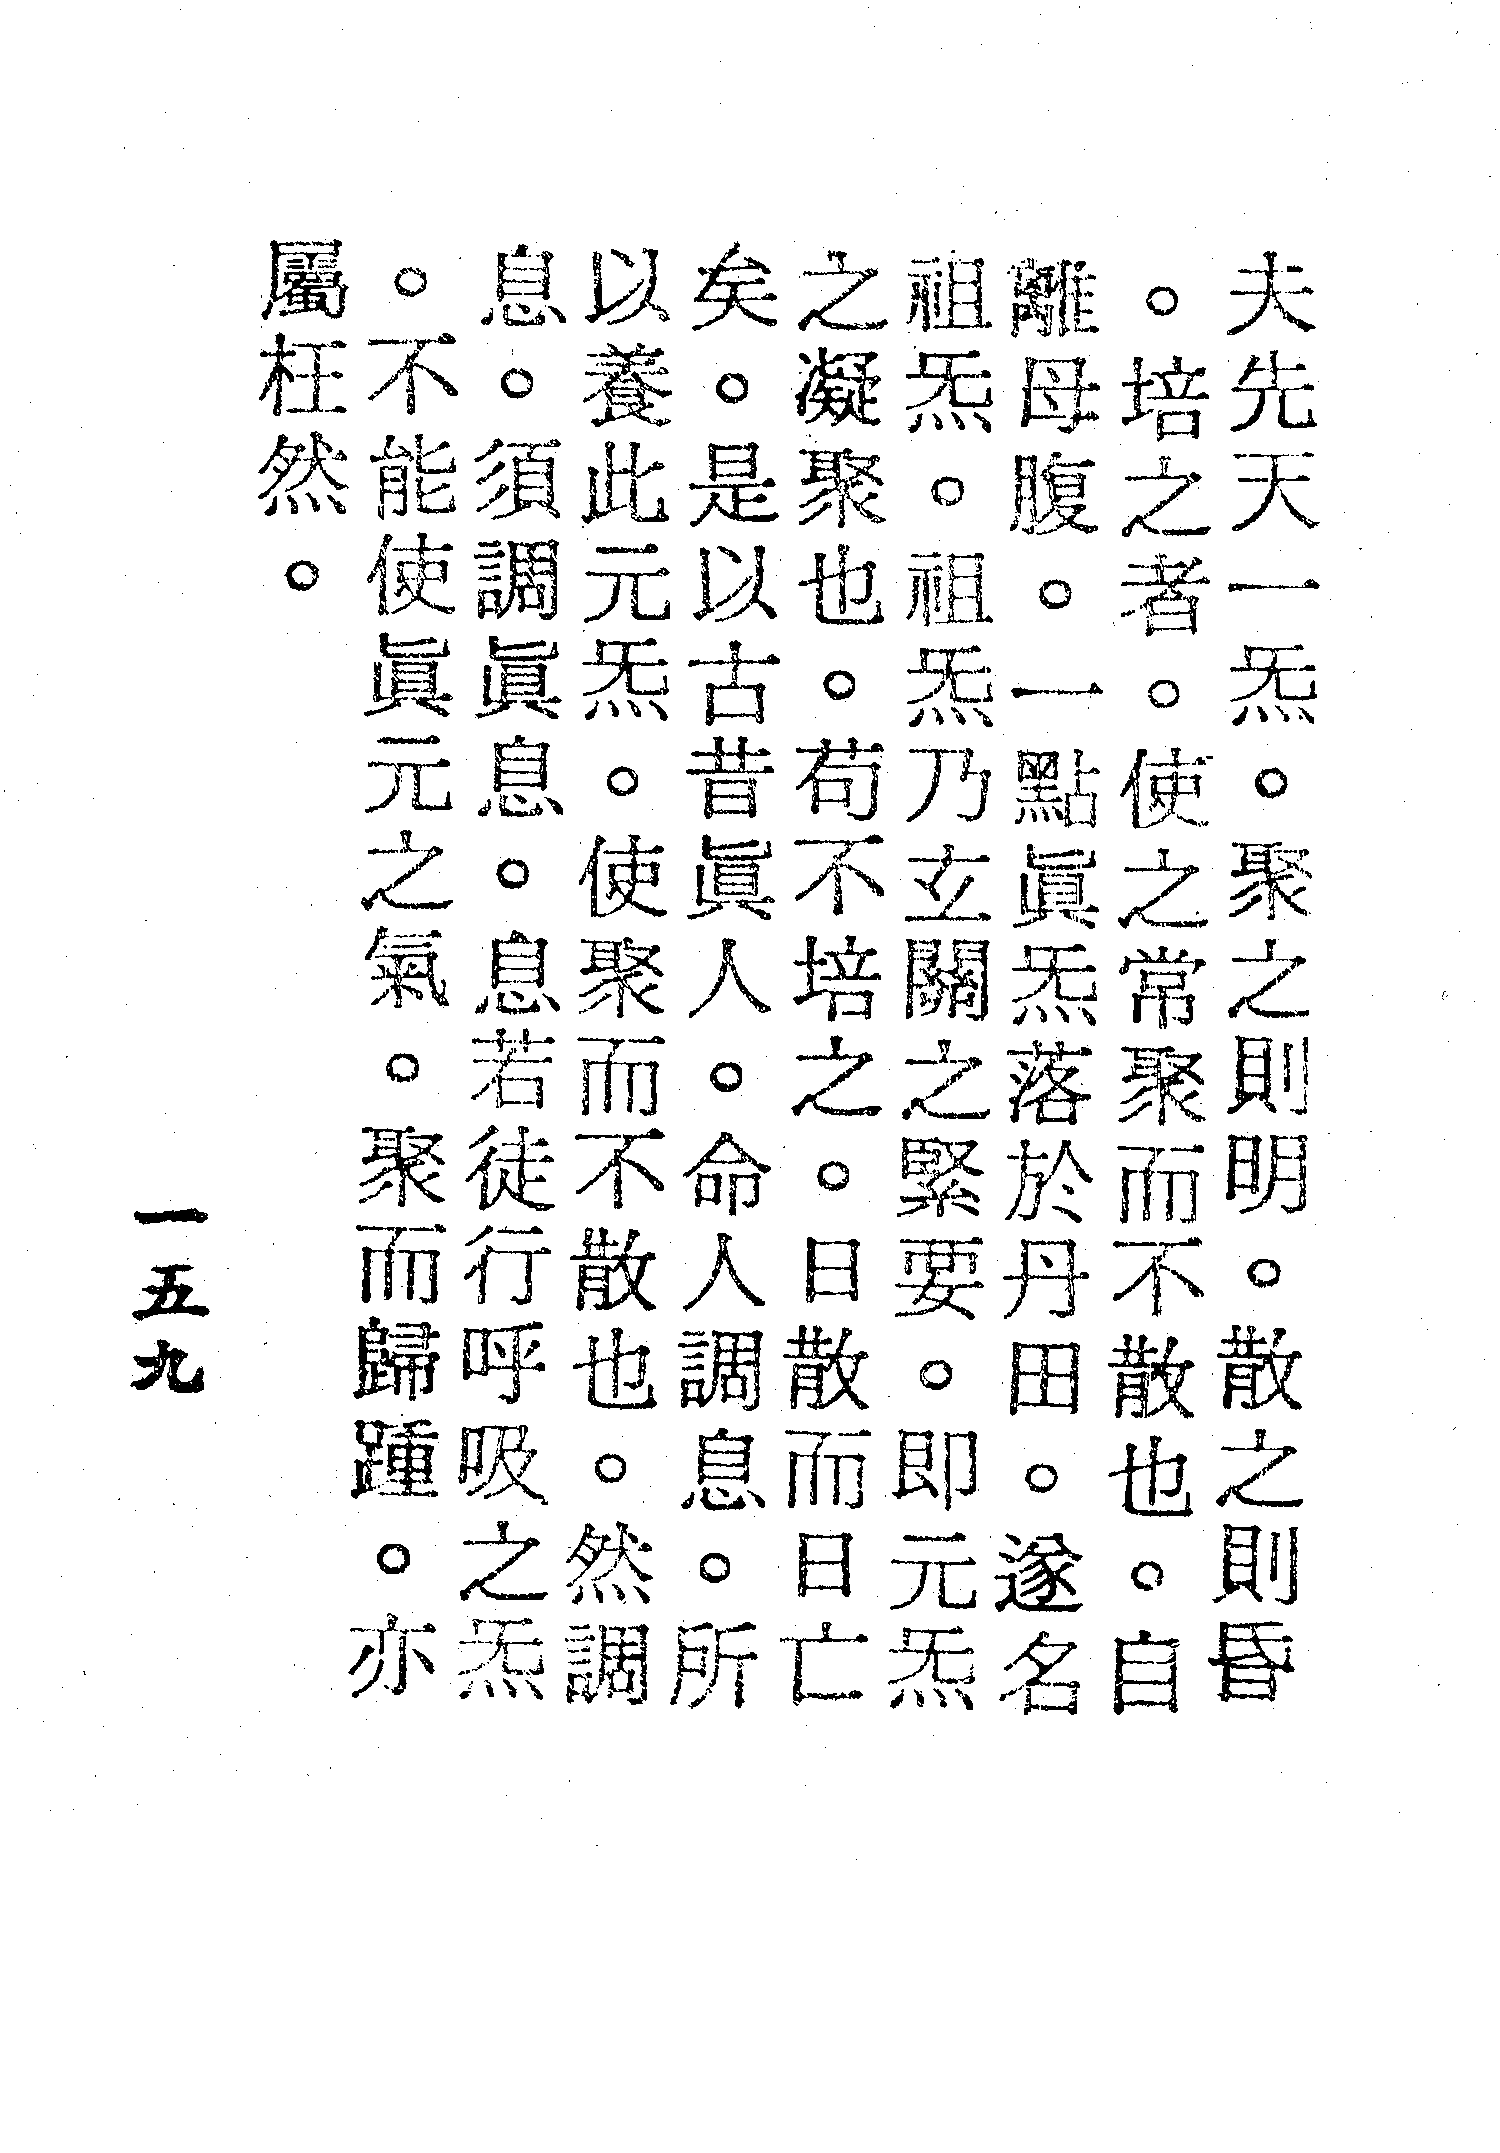 夫先天一炁。聚之則明。散之則昏
。培之者。使之常聚而不散也。自
離母腹。一點眞炁落於丹田。遂名
祖炁。祖炁乃玄關之緊要。即元炁
之凝聚也。苟不培之。日散而日亡
矣。是以古昔眞人。命人調息。所
以養此元炁。使聚而不散也。然調
息。須調眞息。息若徒行呼吸之炁
。不能使眞元之氣。聚而歸踵。亦
屬枉然。
一五九